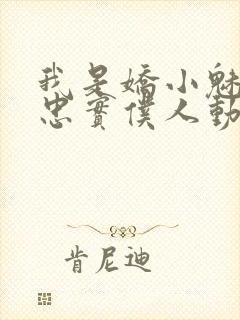 我是嬌小魅
忠實僕人動
肯尼迪